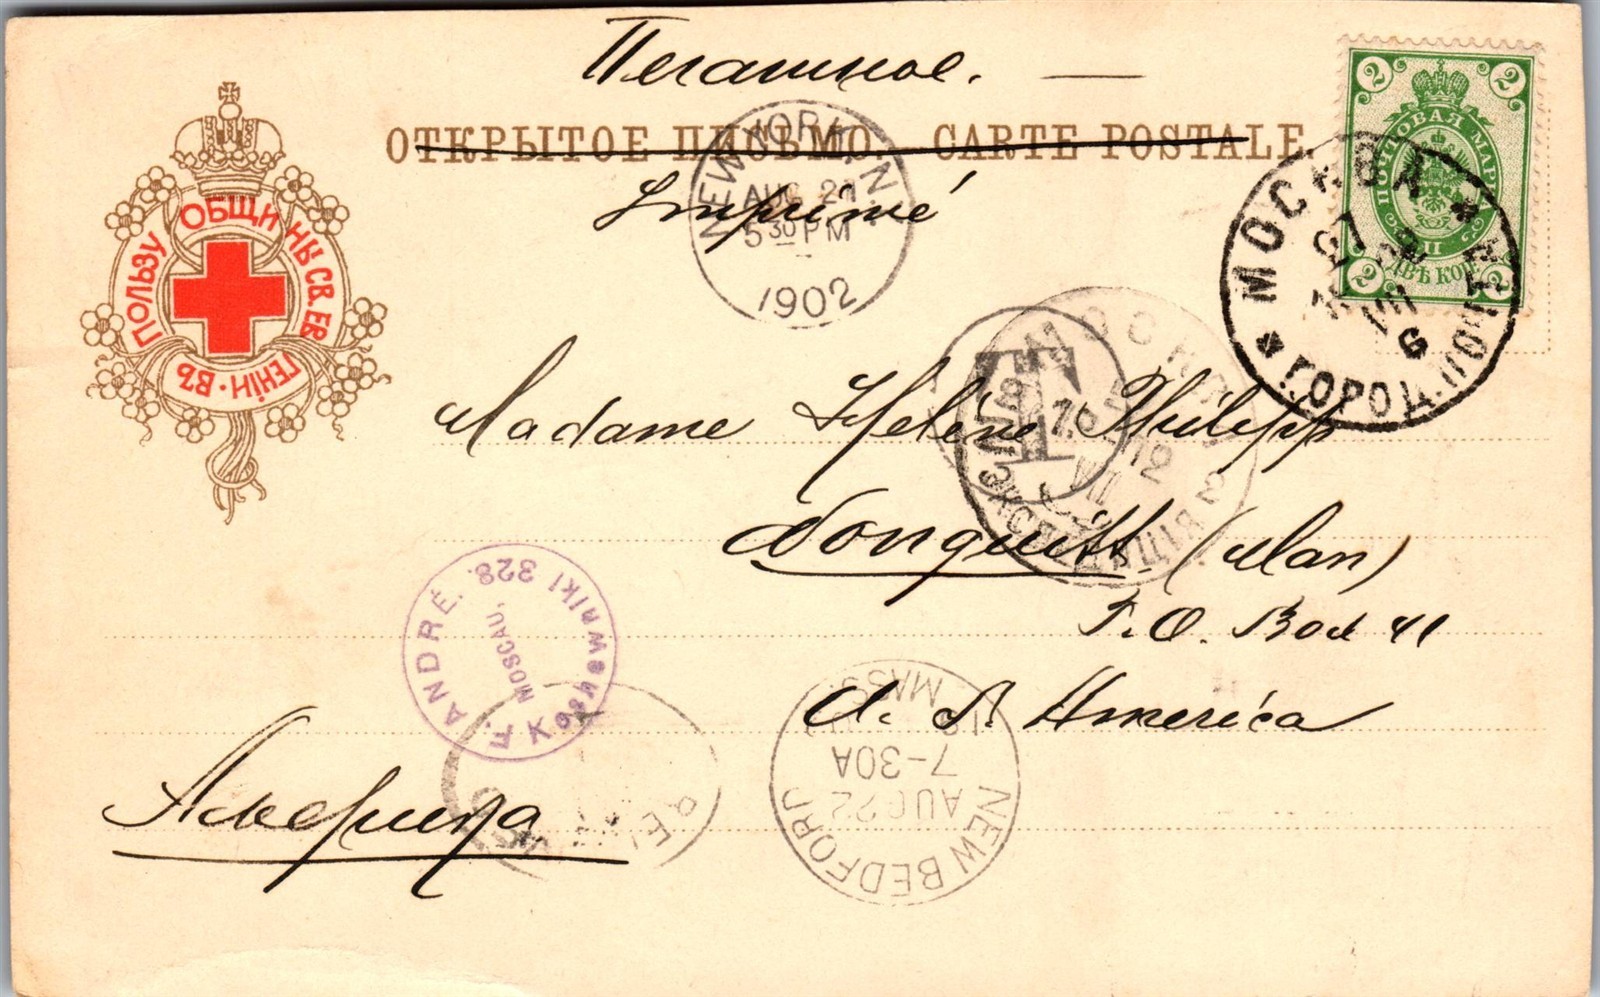 Печатное. —
ОТКРЫТОЕ ПИСЬМО. — CARTE POSTALE.
Imprimé
ВЪ ПОЛЬЗУ ОБЩИНЫ СВ. ЕВГЕНІИ
2 2
ПОЧТОВАЯ МАРКА
II
ДВѢ КОП.
2 2
МОСКВА
ГОРОД. ПОЧТА
NEW YORK, N.Y.
AUG 21
5 30 PM
1902
МОСКВА
T
Madame Hélène Philipp
Nonquitt. (Man)
P. O. Box 41
U. S. America
F. ANDRÉ.
MOSCAU,
Khamowniki 328.
NEW BEDFORD
MASS.
AUG 22
7-30A
Америка